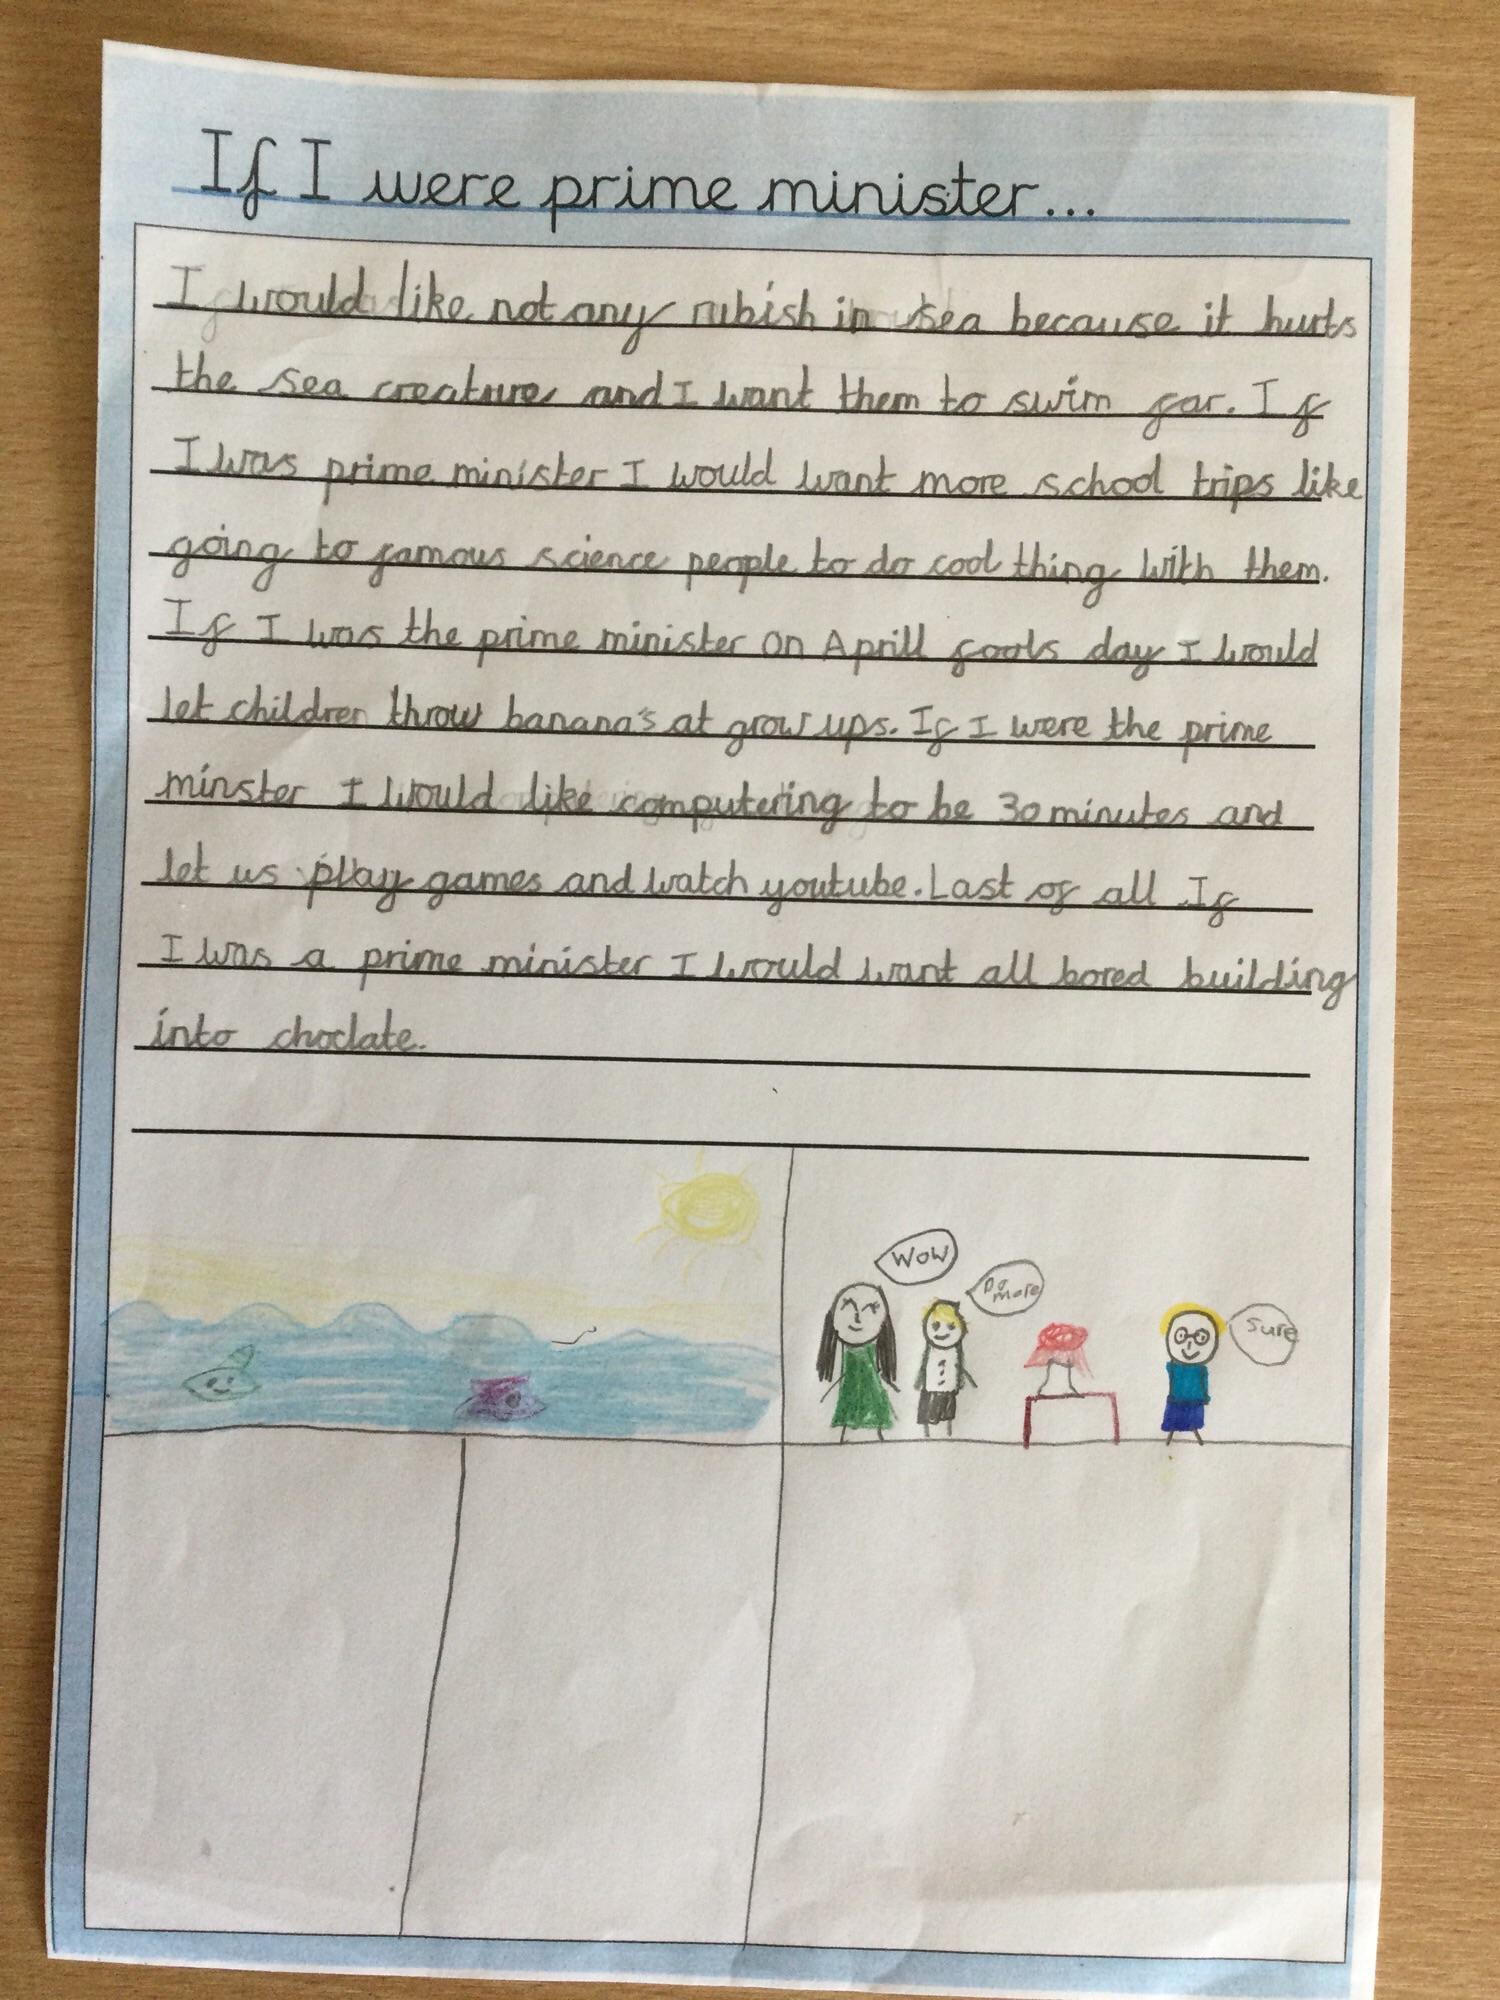 If I were prime minister...
I would like not any rubish in sea because it hurts
the sea creature and I want them to swim far. If
I was prime minister I would want more school trips like
going to famous science people to do cool thing with them.
If I was the prime minister on Aprill fools day I would
let children throw banana's at grow ups. If I were the prime
minster I would like computering to be 30 minutes and
let us play games and watch youtube. Last of all If
I was a prime minister I would want all bored building
into choclate.
Wow
Do
more
Sure